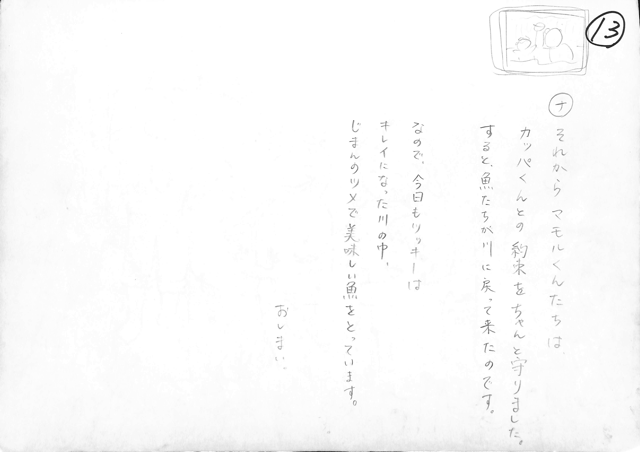 13
ナ
それから マモルくんたちは、
カッパくんとの約束をちゃんと守りました。
すると、魚たちが川に戻って来たのです。
なので、今日もリッキーは
キレイになった川の中、
じまんのツメで美味しい魚をとっています。
おしまい。